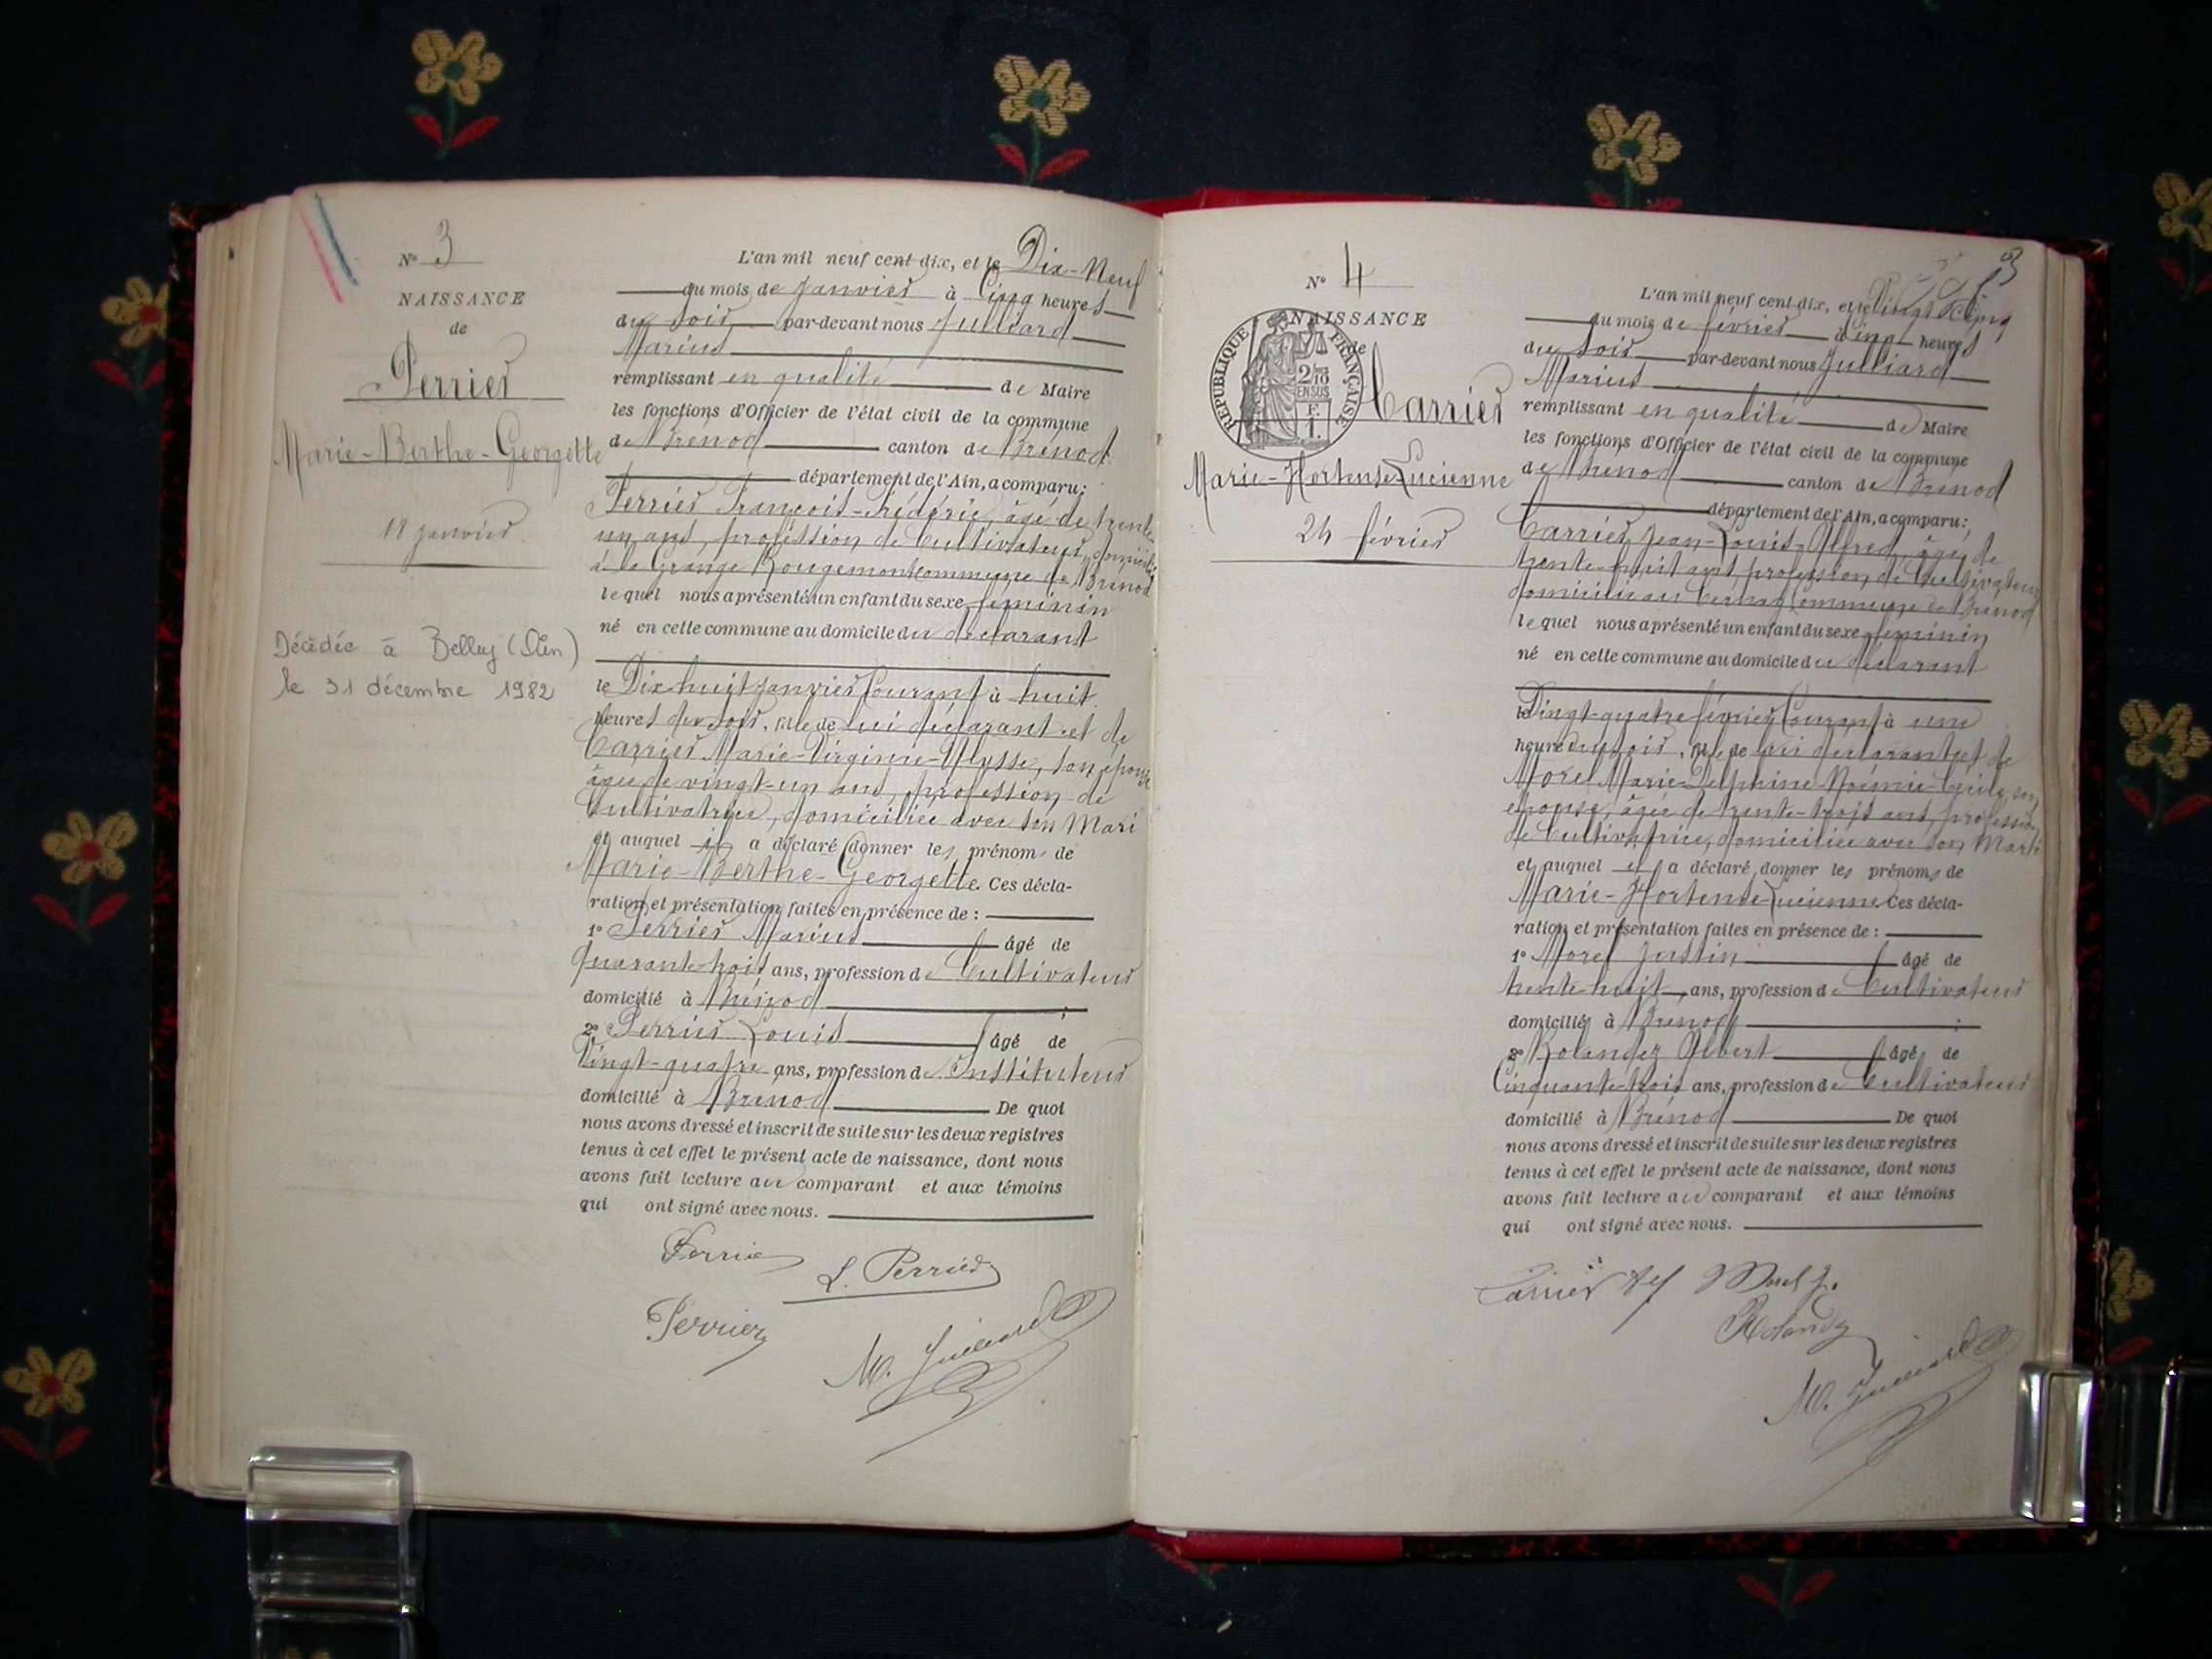 N° 3
NAISSANCE
de
Perrier
Marie-Berthe-Georgette
18 janvier
Décédée à Belley (Ain)
le 31 décembre 1982
L'an mil neuf cent dix, et le Dix-Neuf
du mois de Janvier à Cinq heures
du Soir par-devant nous Julliard
Marius
remplissant en qualité de Maire
les fonctions d'Officier de l'état civil de la commune
de Brénod canton de Brénod
département de l'Ain, a comparu:
Perrier François-Frédéric, âgé de trente
un ans, profession de Cultivateur, domicilié
à la Grange Rougemont commune de Brénod
lequel nous a présenté un enfant du sexe féminin
né en cette commune au domicile du déclarant
le Dix huit janvier Courant à huit
heures du soir, fille de lui déclarant et de
Carrier Marie-Virginie-Ulysse, son épouse
âgée de vingt-un ans, profession de
Cultivatrice, domiciliée avec son Mari
et auquel il a déclaré donner les prénoms de
Marie-Berthe-Georgette. Ces décla-
ration et présentation faites en présence de :
1° Perrier Marius âgé de
quarante-trois ans, profession de Cultivateur
domicilié à Brénod ;
2° Perrier Louis âgé de
Vingt-quatre ans, profession de Instituteur
domicilié à Brénod De quoi
nous avons dressé et inscrit de suite sur les deux registres
tenus à cet effet le présent acte de naissance, dont nous
avons fait lecture au comparant et aux témoins
qui ont signé avec nous.
Perrier
L. Perrier
Perrier
M. Julliard
3
N° 4
NAISSANCE
de
RÉPUBLIQUE FRANÇAISE
2/10
EN SUS
F.
1.
Carrier
Marie-Hortense-Lucienne
24 février
L'an mil neuf cent dix, et le Vingt Cinq
du mois de février à Cinq heures
du Soir par-devant nous Julliard
Marius
remplissant en qualité de Maire
les fonctions d'Officier de l'état civil de la commune
de Brénod canton de Brénod
département de l'Ain, a comparu:
Carrier Jean-Louis-Alfred, âgé de
trente-huit ans, profession de Cultivateur
domicilié au commune de Brénod
lequel nous a présenté un enfant du sexe féminin
né en cette commune au domicile du déclarant
le Vingt-quatre février Courant à une
heure du soir, fille de lui déclarant et de
Morel Marie-Delphine-Noémie-Cécile, son
épouse, âgée de trente-trois ans, profession
de Cultivatrice, domiciliée avec son Mari
et auquel il a déclaré donner les prénoms de
Marie-Hortense-Lucienne. Ces décla-
ration et présentation faites en présence de :
1° Morel Justin âgé de
trente-huit ans, profession de Cultivateur
domicilié à Brénod ;
2° Rolandez Albert âgé de
Cinquante-trois ans, profession de Cultivateur
domicilié à Brénod De quoi
nous avons dressé et inscrit de suite sur les deux registres
tenus à cet effet le présent acte de naissance, dont nous
avons fait lecture au comparant et aux témoins
qui ont signé avec nous.
Carrier Alf Morel J.
Rolandez
M. Julliard